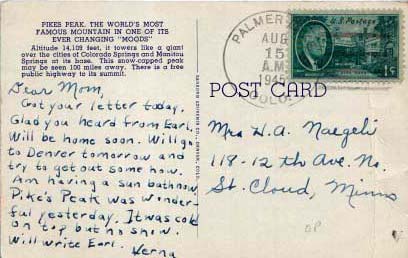 PIKES PEAK, THE WORLD'S MOST
FAMOUS MOUNTAIN IN ONE OF ITS
EVER CHANGING "MOODS"
Altitude 14,109 feet, it towers like a giant
over the cities of Colorado Springs and Manitou
Springs at its base. This snow-capped peak
may be seen 100 miles away. There is a free
public highway to its summit.
Dear Mom,
Got your letter today.
Glad you heard from Earl.
Will be home soon. Will go
to Denver tomorrow and
try to get out some how.
Am having a sun bath now.
Pike's Peak was wonder-
ful yesterday. It was cold
on top but no snow.
Will write Earl.
Verna
PALMER
AUG
15
A.M.
1945
COLO.
U.S. Postage
1¢
POST CARD
Mrs H.A. Naegeli
118-12th Ave. No.
St. Cloud, Minn